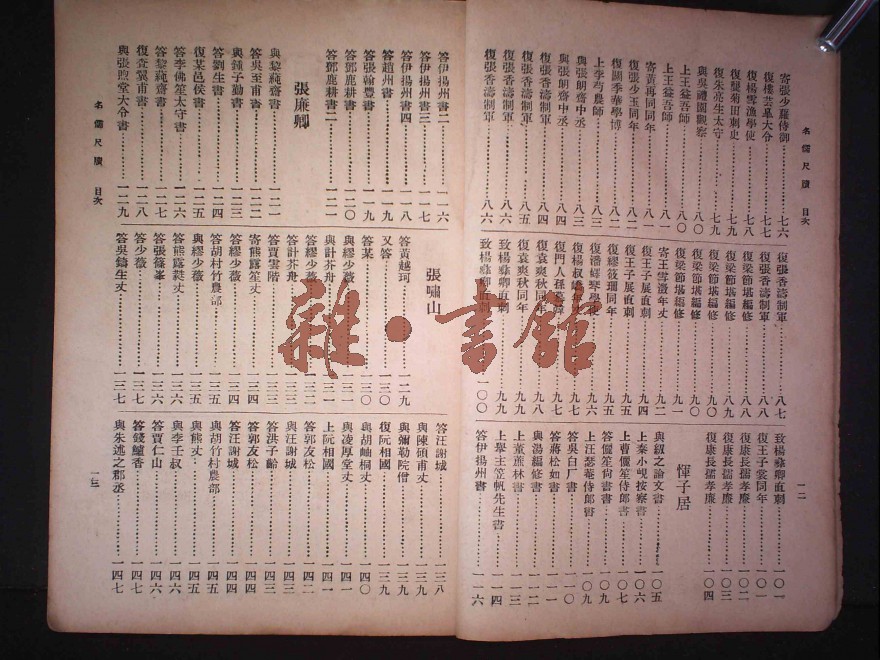 名儒尺牘 目次
一二
寄張少羅侍御…………七六
復樓芸皋大令…………七七
復楊雪漁學使…………七八
復龔菊田刺史…………七九
復朱亮生太守…………七九
與吳禮園觀察…………八〇
上王益吾師…………八〇
上王益吾師…………八一
寄黃再同同年…………八一
復張少玉同年…………八二
復關季華學博…………八二
上李芍農師…………八三
與張朗齋中丞…………八三
與張朗齋中丞…………八四
復張香濤制軍…………八四
復張香濤制軍…………八五
復張香濤制軍…………八六
復張香濤制軍…………八七
復張香濤制軍…………八八
復梁節堪編修…………八八
復梁節堪編修…………八九
復梁節堪編修…………九〇
復梁節堪編修…………九〇
寄王雪澂年丈…………九二
復王子展直刺…………九四
復王子展直刺…………九五
復繆筱珊同年…………九五
復潘嶧琴學使…………九六
復楊叔嶠…………九七
復門人孫…………九七
復袁爽秋同年…………九八
復袁爽秋同年…………九九
致楊蕣卿直刺…………九九
致楊蕣卿直刺…………一〇〇
致楊蕣卿直刺…………一〇一
復王子裳同年…………一〇一
復康長孺孝廉…………一〇二
復康長孺孝廉…………一〇三
復康長孺孝廉…………一〇四
惲子居
與紉之論文書…………一〇五
上秦小峴按察書…………一〇六
上曹儷笙侍郎書…………一〇七
答儷笙尚書書…………一〇八
上汪瑟菴侍郎書…………一〇九
答吳白厂書…………一一〇
答蔣松如書…………一一一
與湯編修書…………一一二
上董蔗林書…………一一三
上舉主笠帆先生書…………一一四
答伊揚州書…………一一六
名儒尺牘 目次
一三
答伊揚州書二…………一一六
答伊揚州書三…………一一七
答伊揚州書四…………一一八
答趙州書…………一一九
答張翰豐書…………一一九
答鄧鹿耕書…………一二〇
答鄧鹿耕書二…………一二一
張廉卿
與黎蒓齋書…………一二一
答吳至甫書…………一二二
與鍾子勤書…………一二三
答劉生書…………一二三
復某邑侯書…………一二五
答李佛笙太守書…………一二六
答黎蒓齋書…………一二七
復查翼甫書…………一二八
與張煦堂大令書…………一二九
張嘯山
答黃越珂…………一二九
又答…………一三〇
答某…………一三〇
與繆少薇…………一三一
與計芥舟…………一三一
答繆少薇…………一三二
答計芥舟…………一三三
答賈雲階…………一三三
寄熊露笙丈…………一三四
答繆少薇…………一三四
答胡村竹農部…………一三五
與繆少薇…………一三五
答熊露蕤丈…………一三六
答張篠峯…………一三六
答少薇…………一三七
答吳鑄生丈…………一三七
答汪謝城…………一三八
與陳碩甫丈…………一三九
與彌勒院僧…………一三九
復阮相國…………一三九
與胡岫桐丈…………一四〇
與凌厚堂丈…………一四一
上阮相國…………一四一
答郭友松…………一四二
與汪謝城…………一四三
答洪子齡…………一四三
答郭友松…………一四四
答汪謝城…………一四四
與胡竹村農部…………一四五
與熊丈…………一四五
與李壬叔…………一四六
答賈仁山…………一四六
答錢鱸香…………一四七
與朱述之郡丞…………一四七
雜·書館